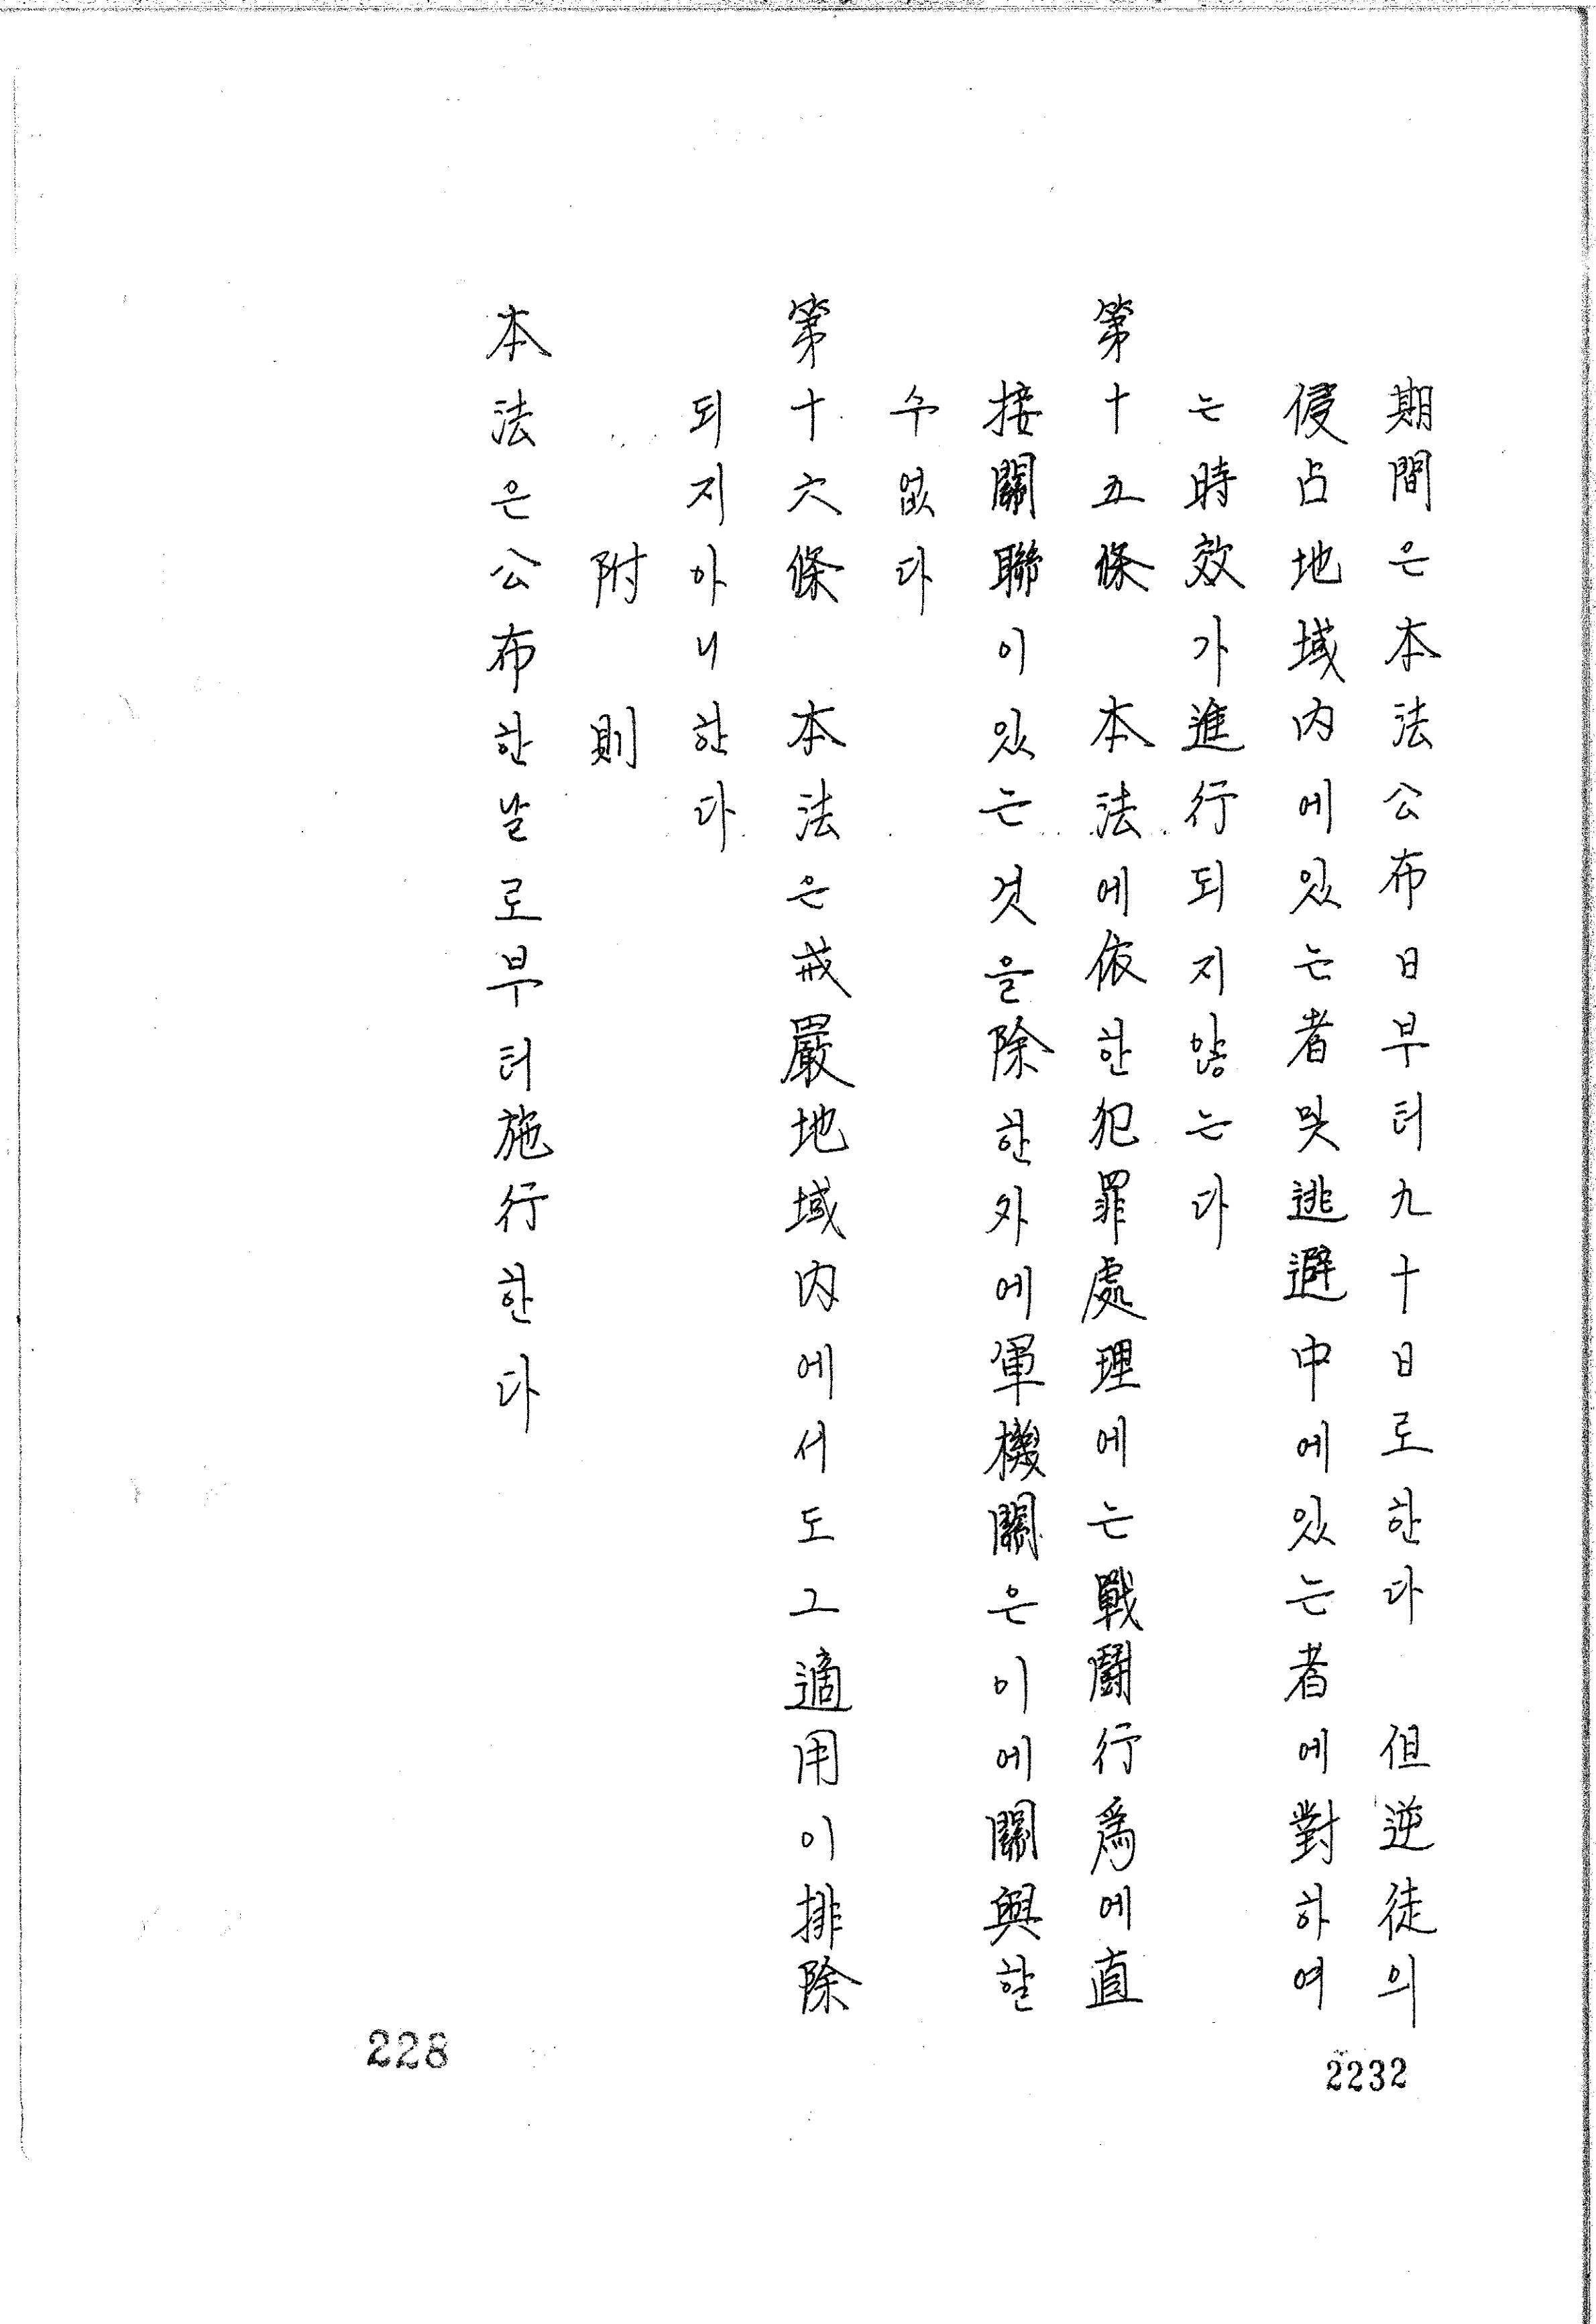 期間은本法公布日부터九十日로한다 但逆徒의
侵占地域内에있는者및逃避中에있는者에對하여
는時效가進行되지않는다
第十五條 本法에依한犯罪處理에는戰鬪行爲에直
接關聯이있는것을除한外에軍機關은이에關與할
수없다
第十六條 本法은戒嚴地域内에서도그適用이排除
되지아니한다
附則
本法은公布한날로부터施行한다
2232
228